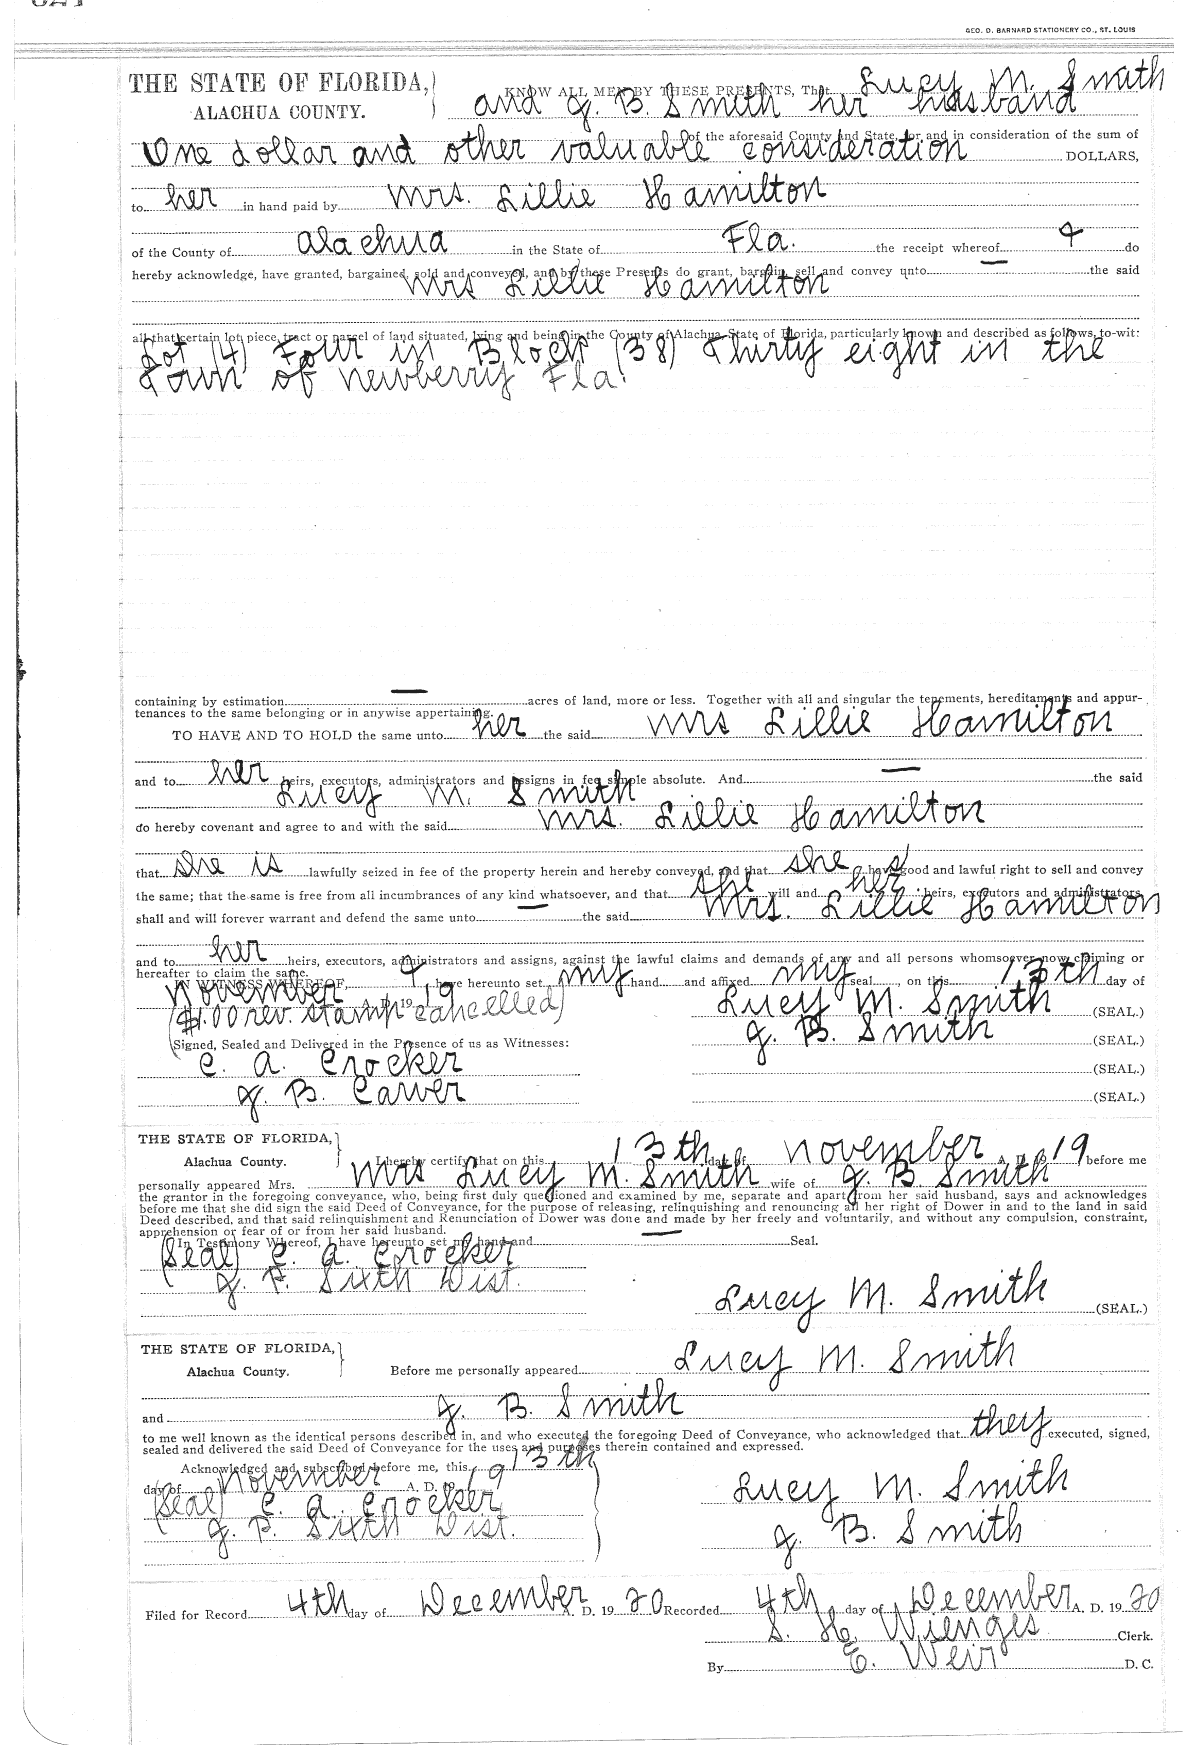 GEO. D. BARNARD STATIONERY CO., ST. LOUIS
THE STATE OF FLORIDA,
ALACHUA COUNTY.
KNOW ALL MEN BY THESE PRESENTS, That Lucy M. Smith
and J. B. Smith her husband
of the aforesaid County and State, for and in consideration of the sum of
One dollar and other valuable consideration DOLLARS,
to her in hand paid by Mrs. Lillie Hamilton
of the County of Alachua in the State of Fla. the receipt whereof I do
hereby acknowledge, have granted, bargained, sold and conveyed, and by these Presents do grant, bargain, sell and convey unto — the said
Mrs Lillie Hamilton
all that certain lot, piece, tract or parcel of land situated, lying and being in the County of Alachua State of Florida, particularly known and described as follows, to-wit:
Lot (4) Four in Block (38) Thirty eight in the
Town of Newberry Fla.
containing by estimation — acres of land, more or less. Together with all and singular the tenements, hereditaments and appur-
tenances to the same belonging or in anywise appertaining.
TO HAVE AND TO HOLD the same unto her the said Mrs Lillie Hamilton
and to her heirs, executors, administrators and assigns in fee simple absolute. And — the said
Lucy M. Smith
do hereby covenant and agree to and with the said Mrs. Lillie Hamilton
that She is lawfully seized in fee of the property herein and hereby conveyed, and that she has good and lawful right to sell and convey
the same; that the same is free from all incumbrances of any kind whatsoever, and that she will and her heirs, executors and administrators
shall and will forever warrant and defend the same unto — the said Mrs. Lillie Hamilton
and to her heirs, executors, administrators and assigns, against the lawful claims and demands of any and all persons whomsoever now claiming or
hereafter to claim the same.
IN WITNESS WHEREOF, I have hereunto set my hand and affixed my seal on this 13th day of
November A. D. 19 19
($1.00 rev. stamp cancelled) Lucy M. Smith (SEAL.)
Signed, Sealed and Delivered in the Presence of us as Witnesses: J. B. Smith (SEAL.)
C. A. Crocker (SEAL.)
J. B. Carver (SEAL.)
THE STATE OF FLORIDA,
Alachua County. I hereby certify that on this 13th day of November A. D. 19 19 before me
personally appeared Mrs. Mrs Lucy M. Smith wife of J. B Smith
the grantor in the foregoing conveyance, who, being first duly questioned and examined by me, separate and apart from her said husband, says and acknowledges
before me that she did sign the said Deed of Conveyance, for the purpose of releasing, relinquishing and renouncing all her right of Dower in and to the land in said
Deed described, and that said relinquishment and Renunciation of Dower was done and made by her freely and voluntarily, and without any compulsion, constraint,
apprehension or fear of or from her said husband.
In Testimony Whereof, I have hereunto set my hand and — Seal.
(Seal) C. A. Crocker
J. P. Sixth Dist.
Lucy M. Smith (SEAL.)
THE STATE OF FLORIDA,
Alachua County. Before me personally appeared Lucy M. Smith
and J. B. Smith
to me well known as the identical persons described in, and who executed the foregoing Deed of Conveyance, who acknowledged that they executed, signed,
sealed and delivered the said Deed of Conveyance for the uses and purposes therein contained and expressed.
Acknowledged and subscribed before me, this 13th
day of November A. D. 19 19
(Seal) C. A. Crocker Lucy M. Smith
J. P. Sixth Dist. J. B. Smith
Filed for Record 4th day of December A. D. 19 20 Recorded 4th day of December A. D. 19 20
S. H. Wienges Clerk.
By E. Weir D. C.